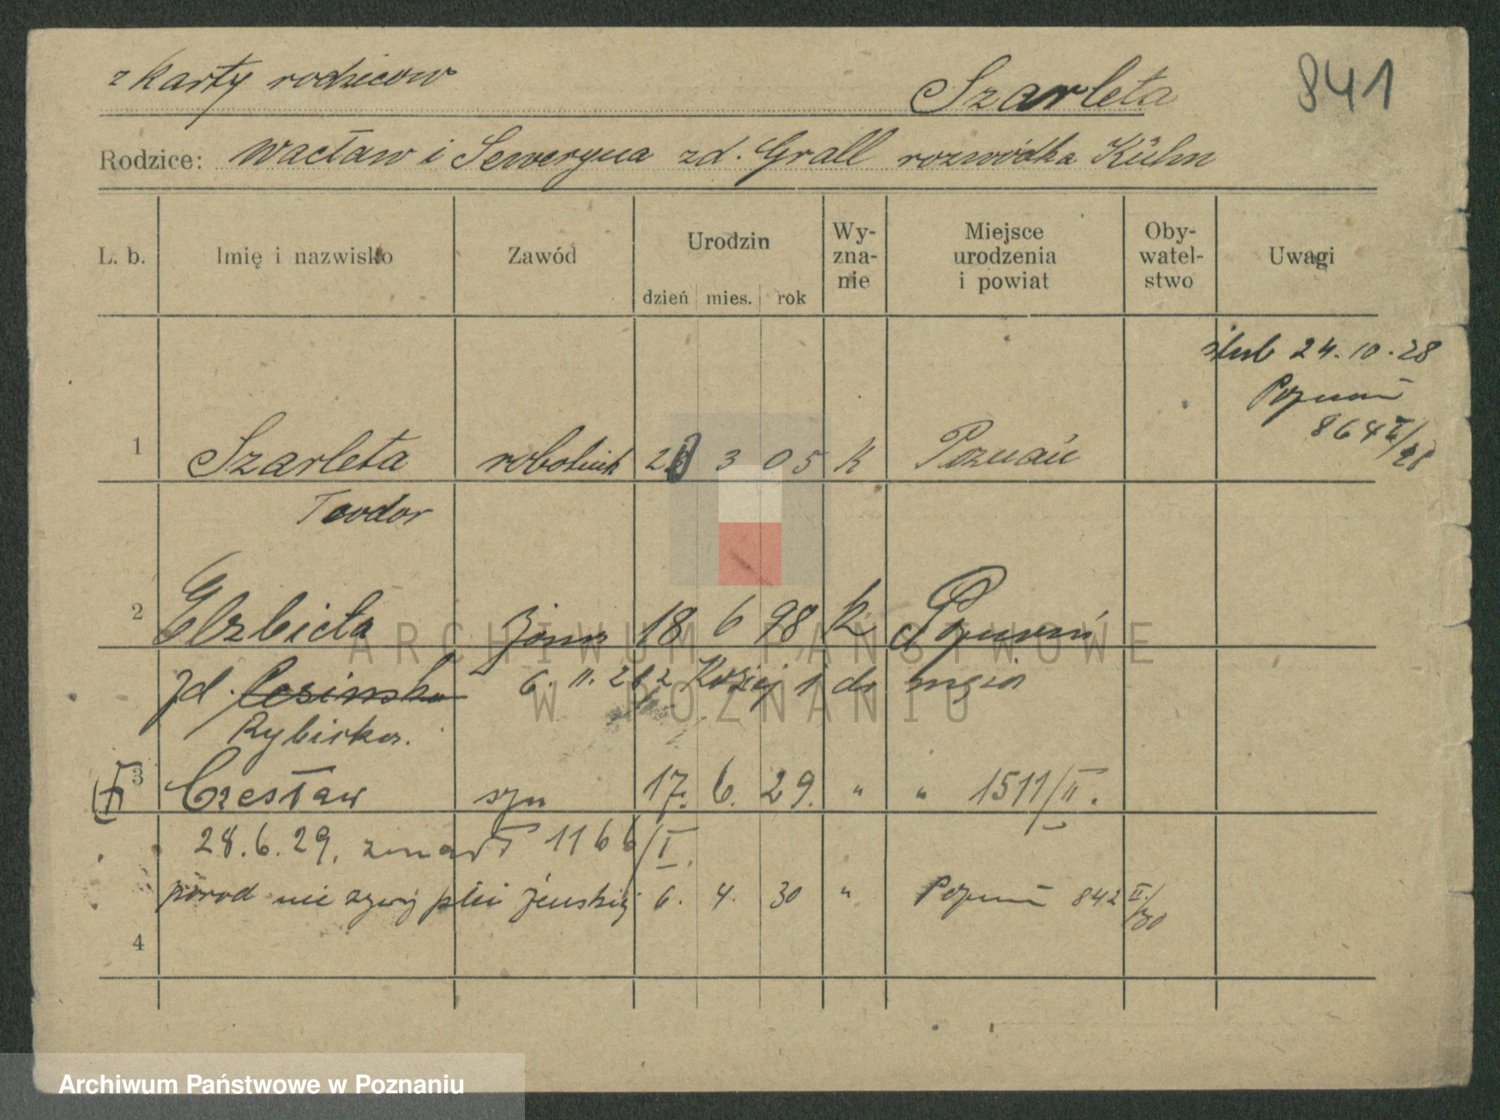 z karty rodziców
Szarleta
841
Rodzice: Wacław i Seweryna zd. Grall rozwódka Kühn
L. b.
Imię i nazwisko
Zawód
Urodzin
dzień mies. rok
Wy-
zna-
nie
Miejsce
urodzenia
i powiat
Oby-
watel-
stwo
Uwagi
ślub 24.10.28
Poznań
864 II/28
1 Szarleta robotnik 3 05 K Poznań
Teodor
2 Elżbieta żona 18 6 98 K Poznań
zd.
Rybicka.
6. 11. 2 Koziej 1 do
3 Czesław syn 17. 6. 29. " " 1511/II.
28.6.29. zmarł 1166/I.
poród nie żywy płci żeńskiej 6. 4. 30 " Poznań 842 II/30
4
ARCHIWUM PAŃSTWOWE
W POZNANIU
Archiwum Państwowe w Poznaniu